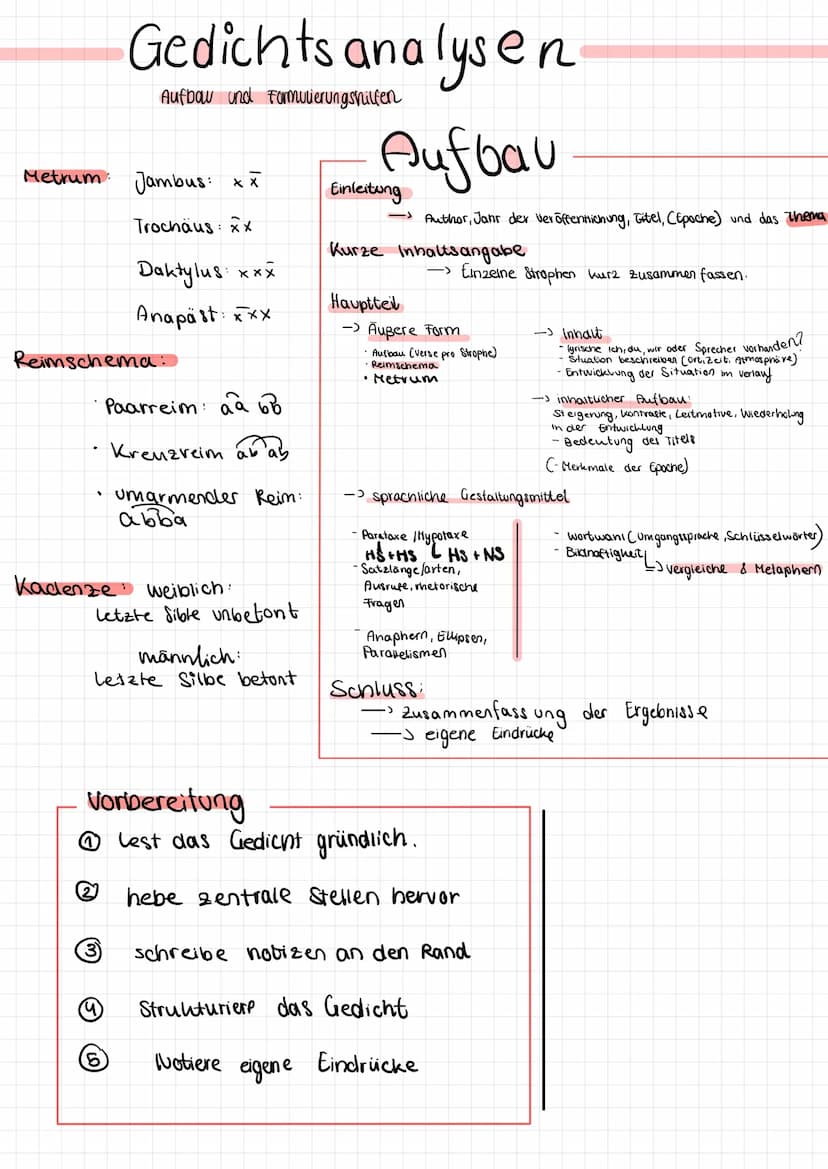 Gedichtsanalysen
Aufbau und Formulierungshilfen
Metrum: Jambus: x x̄
Trochäus: x̄ x
Daktylus: x x x̄
Anapäst: x̄ x x
Reimschema:
· Paarreim: aa bb
· Kreuzreim ab ab
· umarmender Reim:
abba
Kadenze: weiblich:
letzte Sible unbetont
männlich:
letzte Silbe betont
Aufbau
Einleitung
→ Author, Jahr der Veröffentlichung, Titel, (Epoche) und das Thema
Kurze Inhaltsangabe
→ Einzelne Strophen kurz zusammenfassen.
Hauptteil
→ Äußere Form
· Aufbau (Verse pro Strophe)
· Reimschema
· Metrum
→ Inhalt
- lyrische Ich, du, wir oder Sprecher vorhanden?
- Situation beschreiben (Ort, Zeit, Atmosphäre)
- Entwicklung der Situation im verlauf
→ inhaltlicher Aufbau:
Steigerung, Kontraste, Leitmotive, Wiederholung
in der Entwicklung
- Bedeutung des Titels
(- Merkmale der Epoche)
→ sprachliche Gestaltungsmittel
- Parataxe / Hypotaxe
HS+HS ↳ HS + NS
- Satzlänge/arten,
Ausrufe, rhetorische
Fragen
- Anaphern, Ellipsen,
Parallelismen
- Wortwahl (Umgangssprache, Schlüsselwörter)
- Bildhaftigkeit
↳ Vergleiche & Metaphern
Schluss:
→ Zusammenfassung der Ergebnisse
→ eigene Eindrücke
Vorbereitung
① Lest das Gedicht gründlich.
② hebe zentrale Stellen hervor
③ schreibe notizen an den Rand
④ Strukturiere das Gedicht
⑤ Notiere eigene Eindrücke